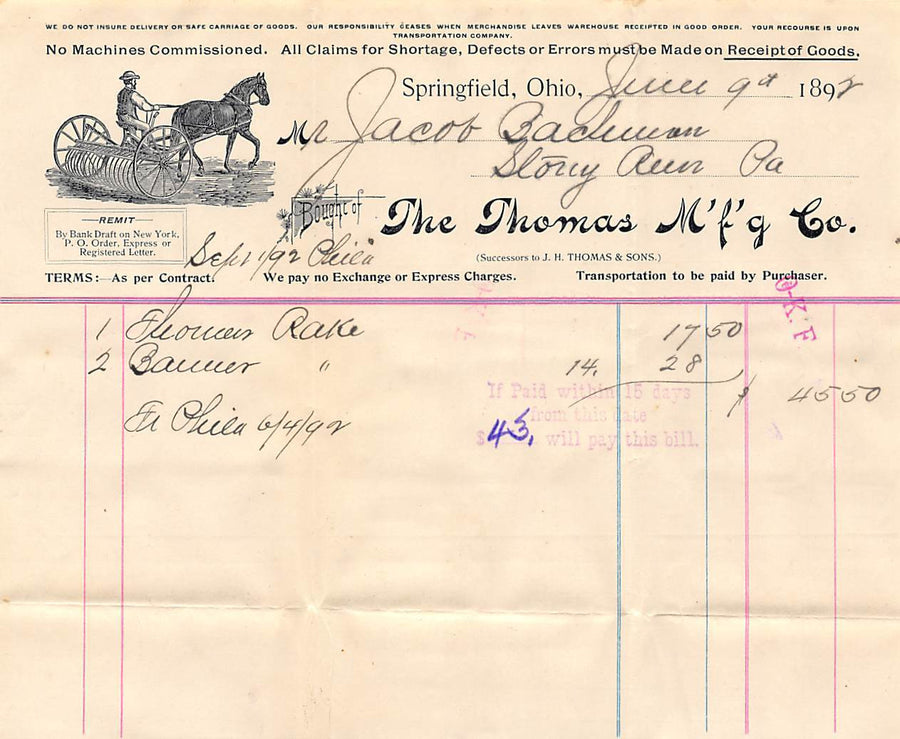 WE DO NOT INSURE DELIVERY OR SAFE CARRIAGE OF GOODS. OUR RESPONSIBILITY CEASES WHEN MERCHANDISE LEAVES WAREHOUSE RECEIPTED IN GOOD ORDER. YOUR RECOURSE IS UPON
TRANSPORTATION COMPANY.
No Machines Commissioned. All Claims for Shortage, Defects or Errors must be Made on Receipt of Goods.
Springfield, Ohio, June 9th 1892
Mr Jacob Bachman
Stony Run Pa
Bought of The Thomas M'f'g Co.
(Successors to J. H. THOMAS & SONS.)
REMIT
By Bank Draft on New York,
P. O. Order, Express or
Registered Letter.
Sep 1/92 Phila
TERMS:—As per Contract. We pay no Exchange or Express Charges. Transportation to be paid by Purchaser.
O-K. F
O-K. F
1 Thomas Rake 17 50
2 Banner " 14. 28
$ 45 50
If Paid within 15 days
from this date
$ 43. will pay this bill.
Fr Phila 6/4/92